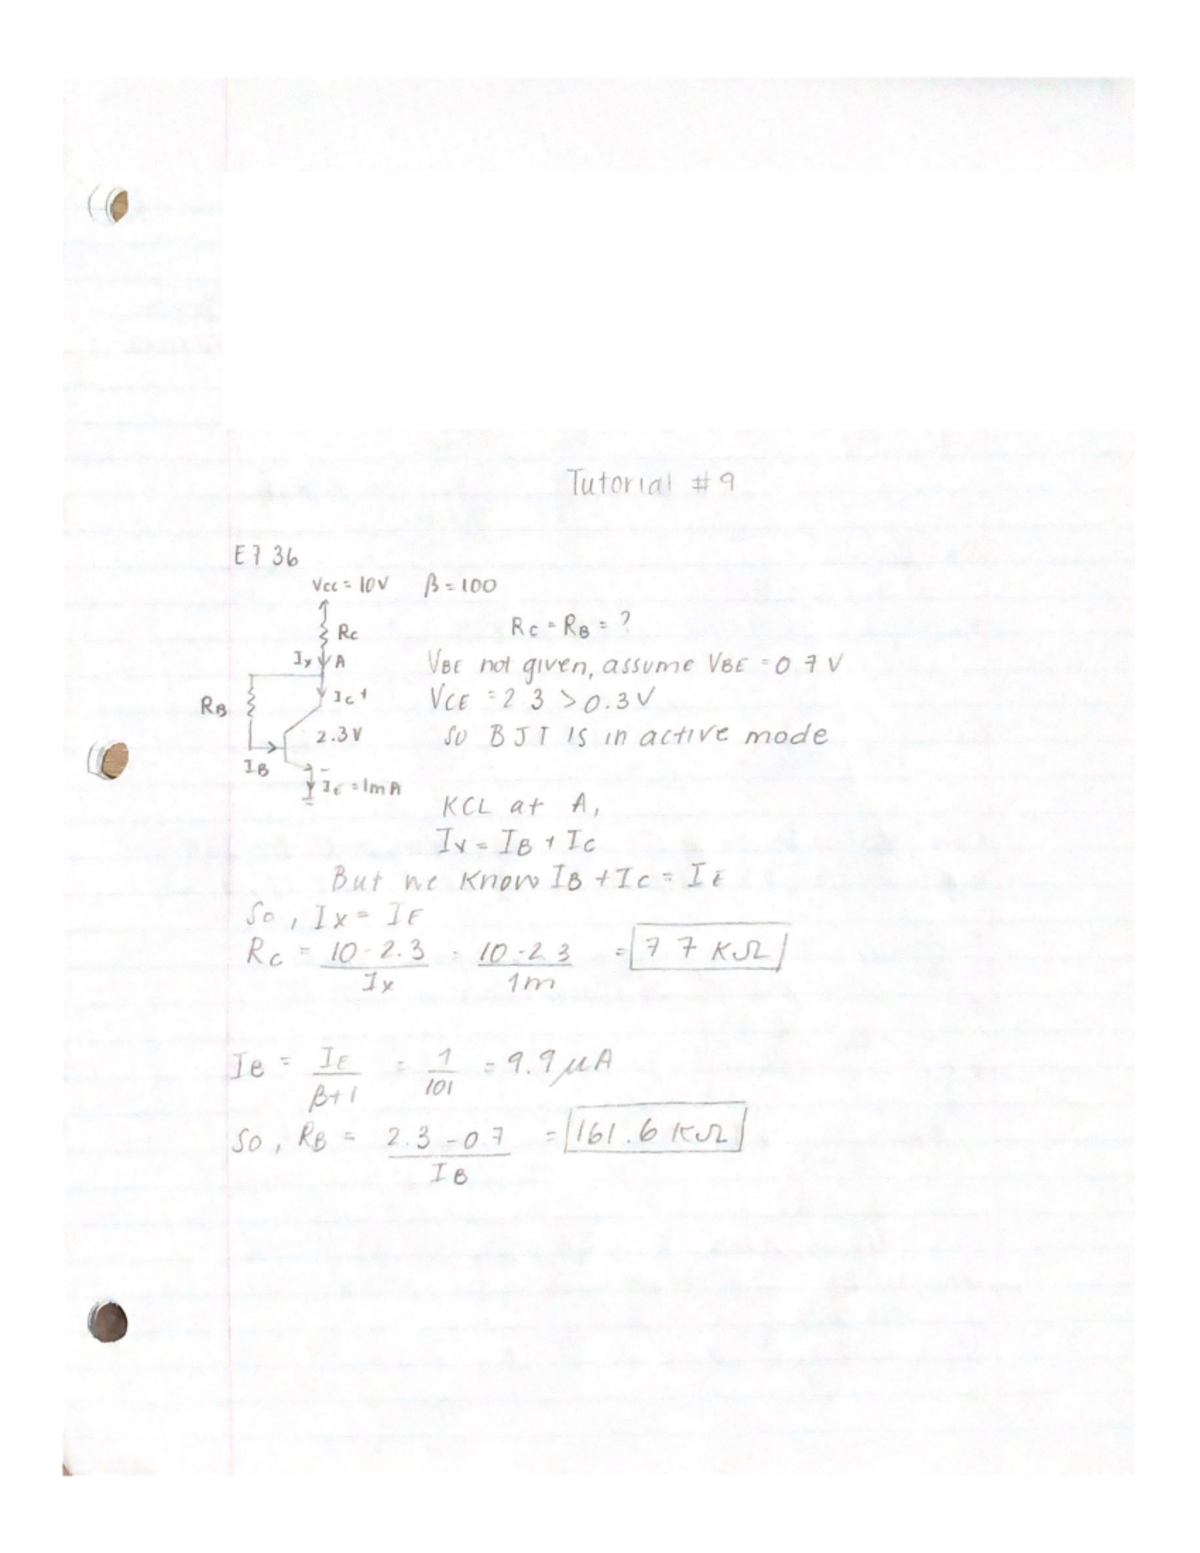 Tutorial #9
E7 36
Vcc = 10V β = 100
Rc
RC = RB = ?
Ix A
VBE not given, assume VBE = 0 7 V
RB
Ic +
VCE = 2 3 > 0.3V
2.3V
so BJT is in active mode
IB
-
IE = 1mA
KCL at A,
Ix = IB + IC
But we know IB + IC = IE
So, Ix = IE
RC = 10 - 2.3 / Ix = 10 - 2 3 / 1m = 7 7 KΩ
IB = IE / β+1 = 1 / 101 = 9.9 μA
So, RB = 2.3 - 0 7 / IB = 161.6 KΩ